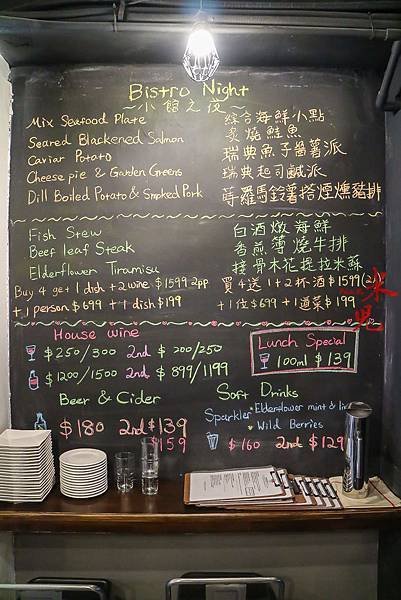 Bistro Night
～小館之夜～
Mix Seafood Plate 綜合海鮮小點
Seared Blackened Salmon 炙燒鮭魚
Caviar Potato 瑞典魚子醬薯派
Cheese pie & Garden Greens 瑞典起司鹹派
Dill Boiled Potato & Smoked Pork 蒔蘿馬鈴薯搭煙燻豬排
Fish Stew 白酒燉海鮮
Beef leaf Steak 香煎薄燒牛排
Elderflower Tiramisu 接骨木花提拉米蘇
Buy 4 get 1 dish + 2 wine $1599 2pp 買4送1+2杯酒$1599(2人)
+1 person $699 +1 dish $199 +1位$699 +1道菜$199
米兒
House wine
$250/300 2nd $200/250
$1200/1500 2nd $899/1199
Lunch Special
100ml $139
Beer & Cider
$180 2nd $139
$159
Soft Drinks
Sparkler Elderflower mint &
Wild Berries
$160 2nd $129